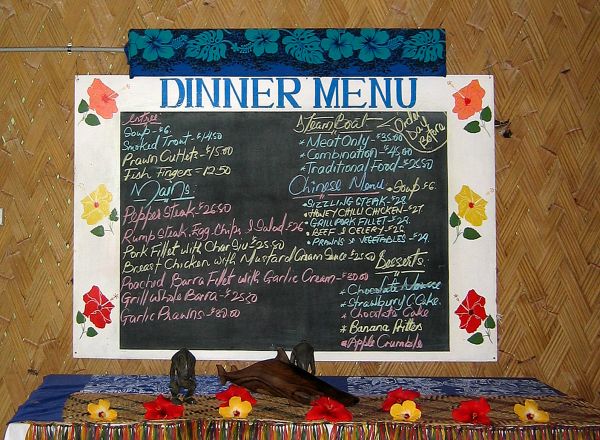 DINNER MENU
entree
Soup - $6.
Smoked Trout - $14.50
Prawn Cutlets - $15.00
Fish Fingers - $12.50
Mains
Pepper Steak - $26.50
Rump Steak, Egg, Chips & Salad - $26
Pork Fillet with Char Siu - $25.50
Breast Chicken with Mustard Cream Sauce - $25.50
Poached Barra Fillet with Garlic Cream - $30.00
Grill Whole Barra - $25.50
Garlic Prawns - $30.00
Steam Boat
Order
Day
Before
* Meat Only - $35.00
* Combination - $45.00
* Traditional Food - $26.50
Chinese Menu
• Soup $6.
• SIZZLING STEAK - $28.
• HONEY CHILLI CHICKEN - $27
• GRILL PORK FILLET - $28.
• BEEF & CELERY - $28.
• PRAWNS & VEGETABLES - $29.
Desserts
* Chocolate Mousse
* Strawberry C. Cake.
* Chocolate Cake
* Banana Fritters
* Apple Crumble